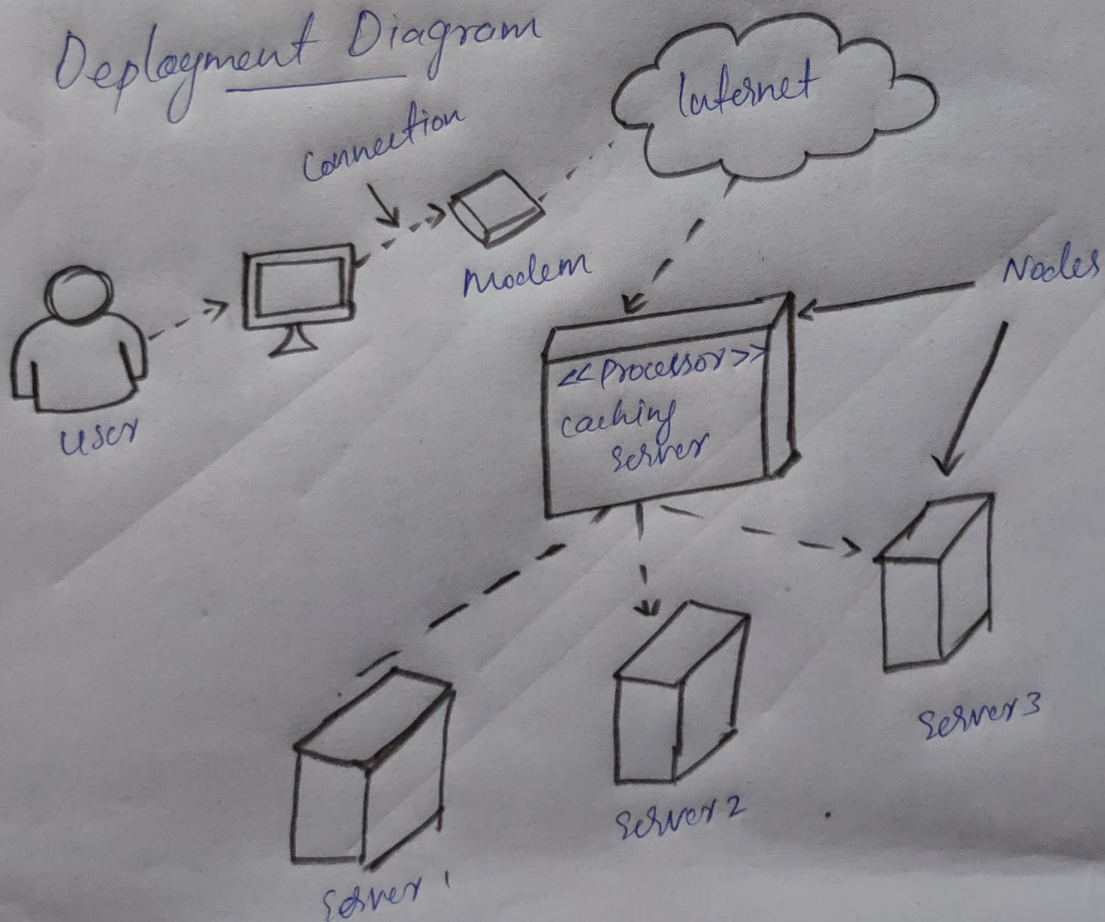 Deployment Diagram
Internet
Connection
Modem
Nodes
<<Processor>>
caching
server
user
Server 3
Server 2
Server 1